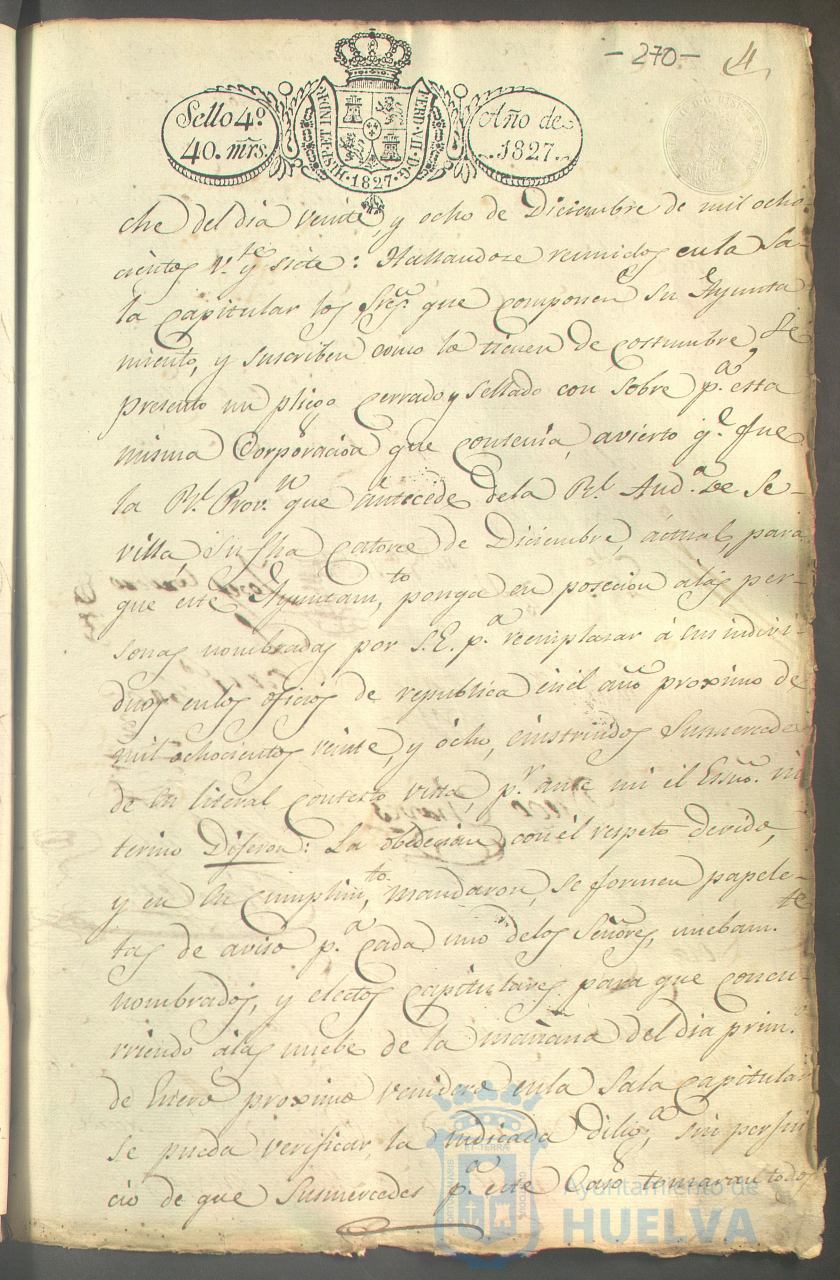 - 270 -
4
Sello 4º
40. mrs.
HISP. ET IND. R.
FERD. VII. D. G.
·1827·
Año de
1827.
che del dia veinte y ocho de Diciembre de mil ocho-
cientos v.te y siete: Hallandose reunidos en la Sa-
la capitular los Sres. que componen su Ayunta
miento, y suscriben como lo tienen de costumbre se
presento un pliego cerrado y sellado con sobre p.a esta
misma Corporacion que contenia, avierto q.e fue
la Rl. Prov.n que antecede de la Rl. Aud.a de Se-
villa su fha catorce de Diciembre, actual, para
que este Ayuntam.to ponga en posecion á las per-
sonas nombradas por S.E. p.a reemplasar á sus indivi-
duos en los oficios de republica en el año proximo de
mil ochocientos veinte, y ocho, e instruidos Sus mercedes
de su literal contesto vista, p.r ante mi el Esno. in
terino Dijeron: La obdecian con el respeto devido,
y en su cumplim.to mandaron, se formen papele-
tas de aviso p.a cada uno de los Señores, nuebam.te
nombrados, y electos capitulares para que concu-
rriendo á las nuebe de la mañana del dia prim.o
de Enero proximo venidero en la Sala capitular
se pueda verificar, la indicada dilig.a sin perjui
cio de que Sus mercedes p.a este caso tomaran todo
Ayuntamiento de
HUELVA